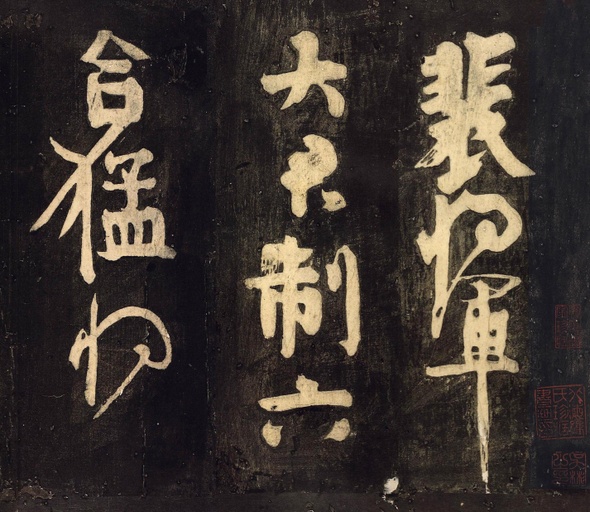 裴將軍
大君制六
合猛將